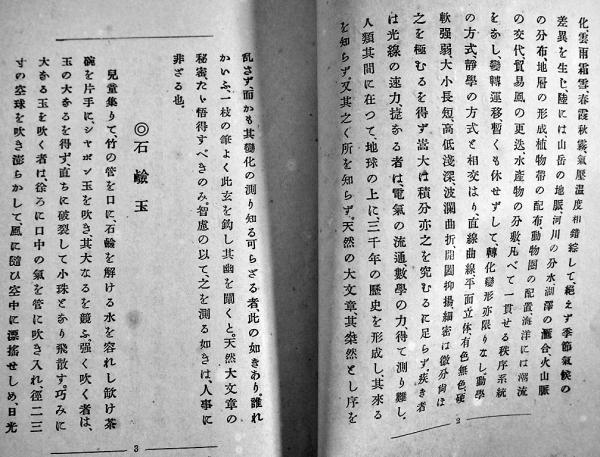 化雲雨霜雪、春霞秋霧、氣壓溫度相錯綜して、絕えず季節氣候の
差異を生じ、陸には山岳の地脈、河川の分水、湖澤の滙合、火山脈
の分布、地層の形成、植物帶の配布、動物圈の配置、海洋には潮流
の交代、貿易風の更迭、水產物の分敷、凡べて一貫せる秩序系統
をなし、變轉運移暫くも休せずして、轉化變形亦限りなし、動學
の方式靜學の方式と相交はり、直線曲線平面立體、有色無色、硬
軟强弱、大小長短、高低淺深、波瀾曲折、開闔抑揚、細密は微分尙ほ
之を極むるを得ず、嵩大は積分亦之を究むるに足らず、疾き者
は光線の速力、捷かる者は、電氣の流通、數學の力、得て測り難し、
人類其間に在つて、地球の上に、三千年の歷史を形成し、其來る
を知らず、又其之く所を知らず、天然の大文章、其粲然とし序を
2
亂さず、而かも其變化の測り知る可らざる者此の如きあり、誰れ
かいふ、一枝の筆よく此玄を鈎し其幽を闡くと。天然大文章の
秘密たゞ悟得すべきのみ、智慮の以て、之を測る如きは、人事に
非ざる也。
◎石鹼玉
兒童集りて、竹の管を口に、石鹼を解ける水を容れし缺け茶
碗を片手に、シャボン玉を吹き、其大なるを競ふ、强く吹く者は、
玉の大なるを得ず、直ちに破裂して小珠となり飛散す。巧みに
大なる玉を吹く者は、徐ろに口中の氣を管に吹き入れ、徑二三
寸の空球を吹き膨らかして、風に隨ひ空中に漂搖せしめ、日光
3